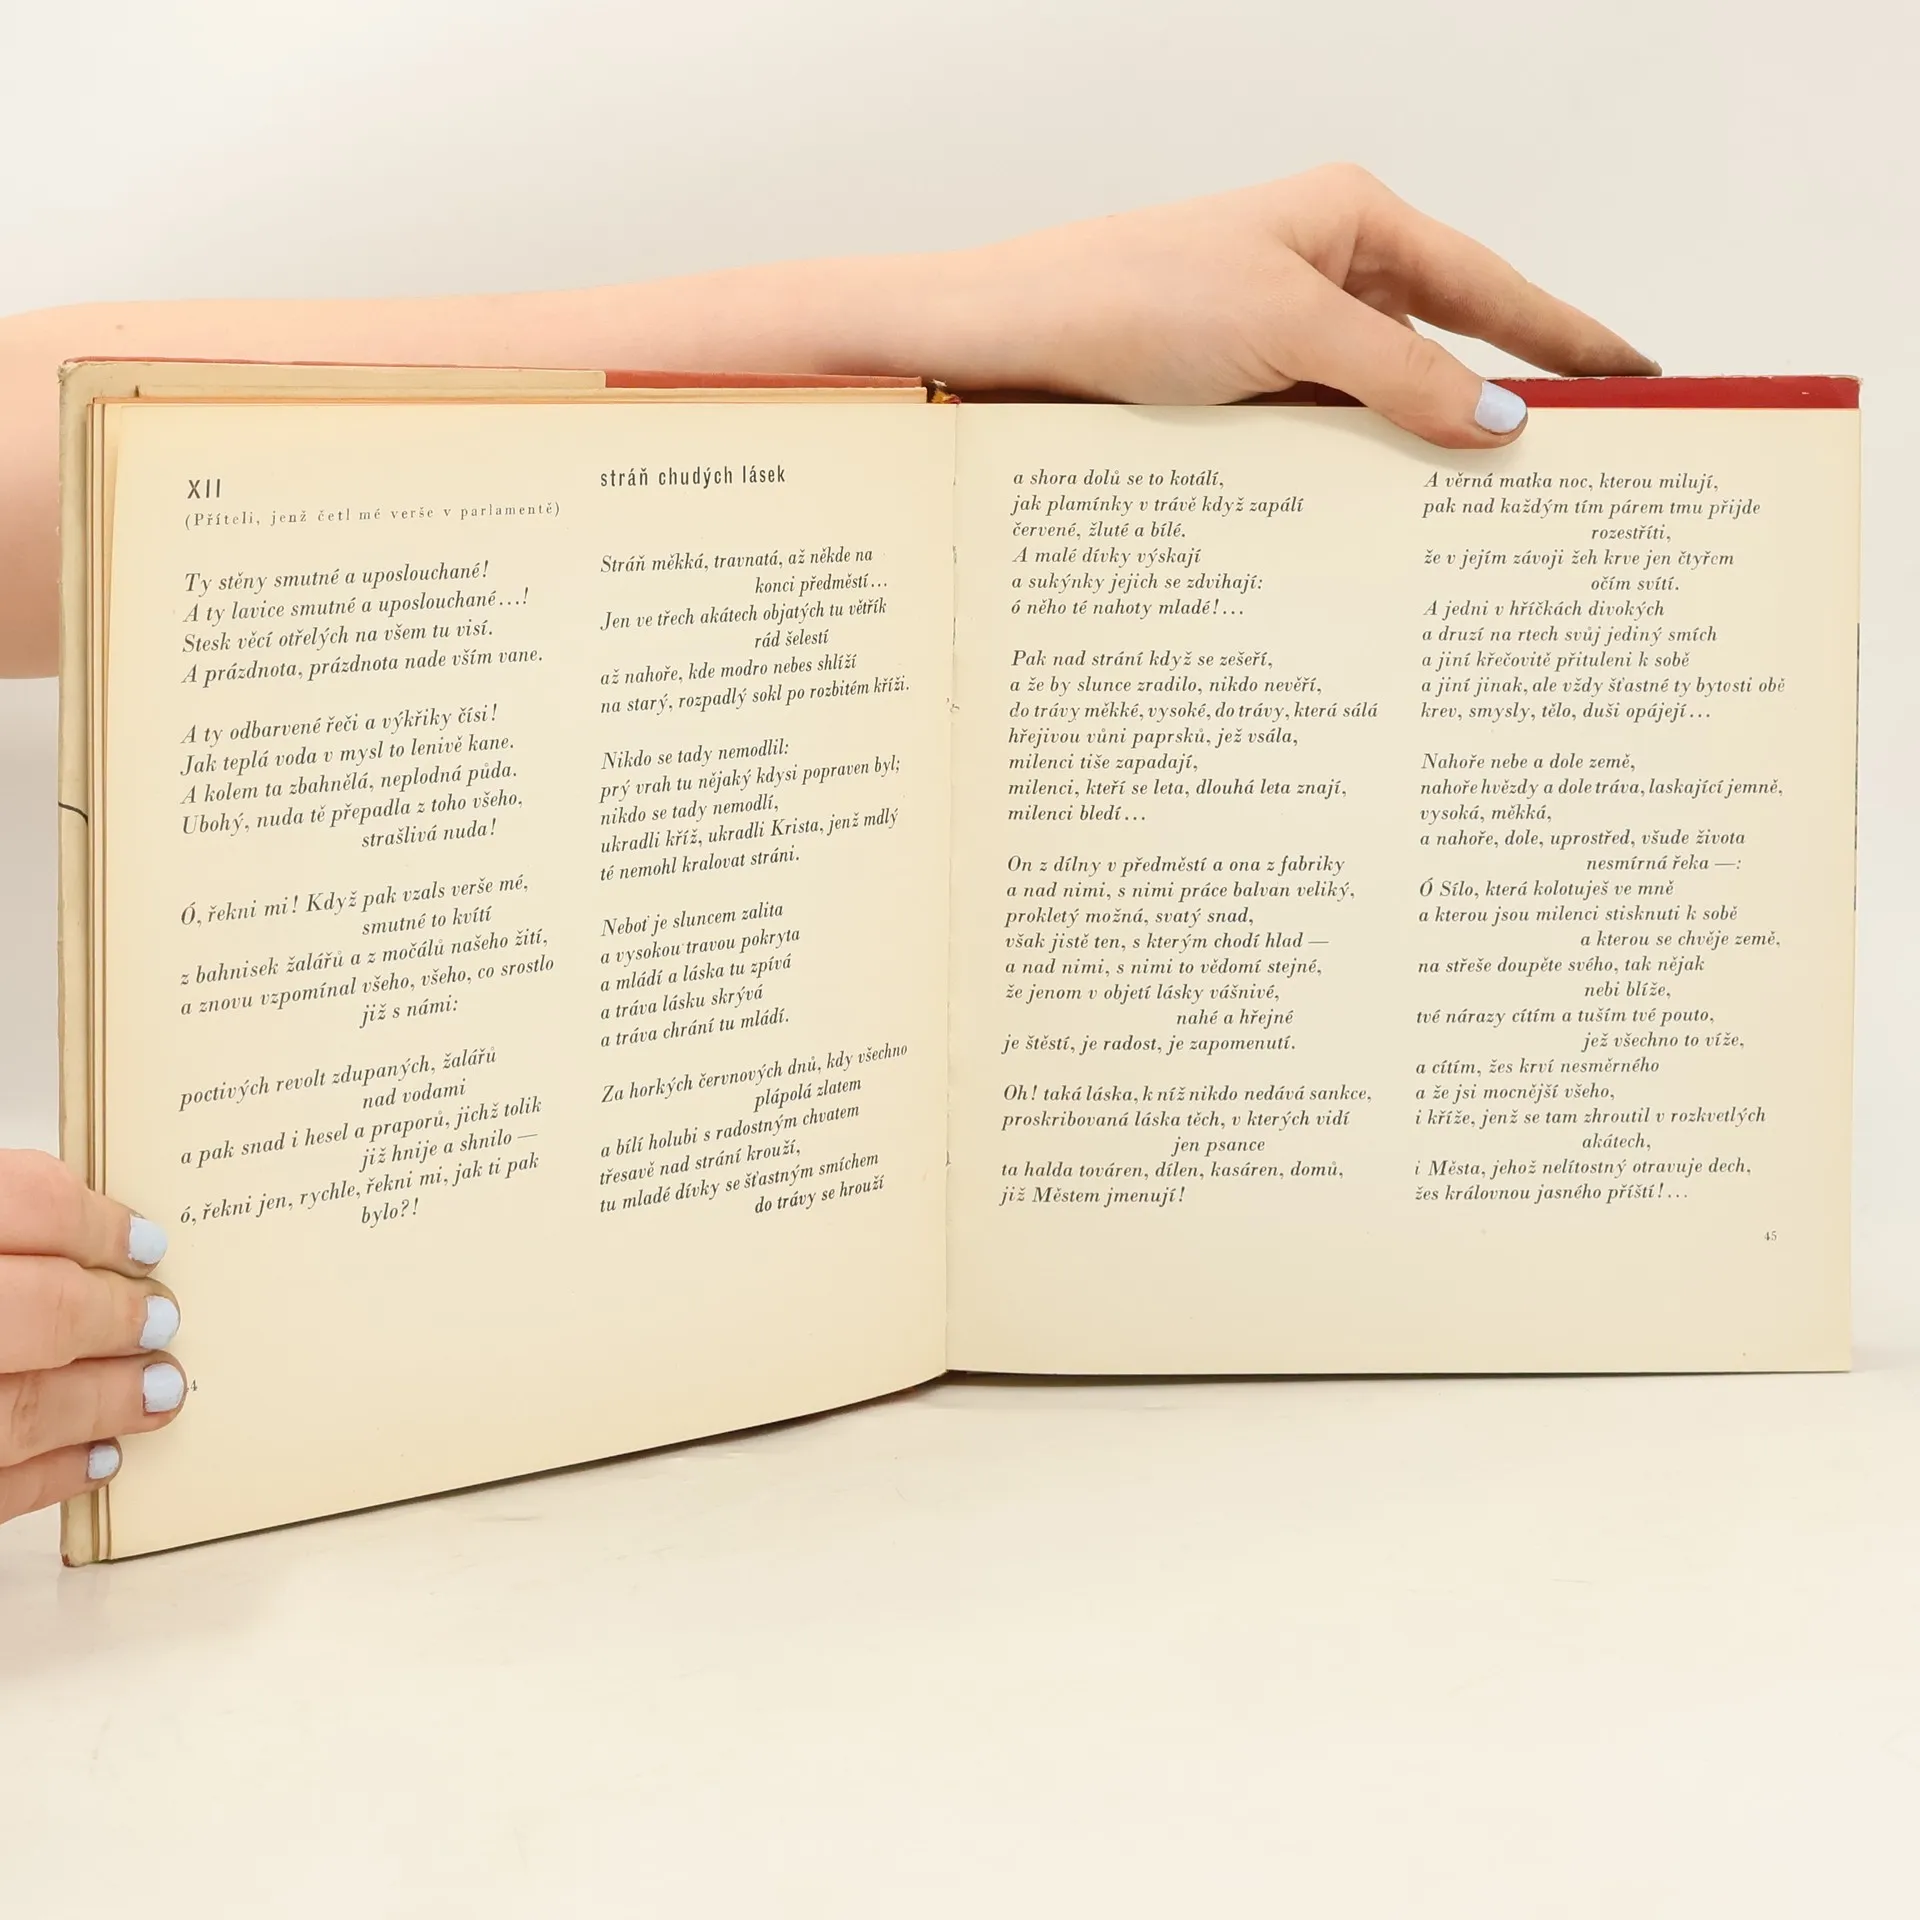 XII
(Příteli, jenž četl mé verše v parlamentě)
Ty stěny smutné a uposlouchané!
A ty lavice smutné a uposlouchané...!
Stesk věcí otřelých na všem tu visí.
A prázdnota, prázdnota nade vším vane.
A ty odbarvené řeči a výkřiky čísi!
Jak teplá voda v mysl to lenivě kane.
A kolem ta zbahnělá, neplodná půda.
Ubohý, nuda tě přepadla z toho všeho,
strašlivá nuda!
Ó, řekni mi! Když pak vzals verše mé,
smutné to kvítí
z bahnisek žalářů a z močálů našeho žití,
a znovu vzpomínal všeho, všeho, co srostlo
již s námi:
poctivých revolt zdupaných, žalářů
nad vodami
a pak snad i hesel a praporů, jichž tolik
již hnije a shnilo —
ó, řekni jen, rychle, řekni mi, jak ti pak
bylo?!
4
stráň chudých lásek
Stráň měkká, travnatá, až někde na
konci předměstí...
Jen ve třech akátech objatých tu větřík
rád šelestí
až nahoře, kde modro nebes shlíží
na starý, rozpadlý sokl po rozbitém kříži.
Nikdo se tady nemodlil:
prý vrah tu nějaký kdysi popraven byl;
nikdo se tady nemodlí,
ukradli kříž, ukradli Krista, jenž mdlý
té nemohl kralovat stráni.
Neboť je sluncem zalita
a vysokou travou pokryta
a mládí a láska tu zpívá
a tráva lásku skrývá
a tráva chrání tu mládí.
Za horkých červnových dnů, kdy všechno
plápolá zlatem
a bílí holubi s radostným chvatem
třesavě nad strání krouží,
tu mladé dívky se šťastným smíchem
do trávy se hrouží
a shora dolů se to kotálí,
jak plamínky v trávě když zapálí
červené, žluté a bílé.
A malé dívky výskají
a sukýnky jejich se zdvihají:
ó něho té nahoty mladé!...
Pak nad strání když se zešeří,
a že by slunce zradilo, nikdo nevěří,
do trávy měkké, vysoké, do trávy, která sálá
hřejivou vůni paprsků, jež vsála,
milenci tiše zapadají,
milenci, kteří se leta, dlouhá leta znají,
milenci bledí...
On z dílny v předměstí a ona z fabriky
a nad nimi, s nimi práce balvan veliký,
prokletý možná, svatý snad,
však jistě ten, s kterým chodí hlad —
a nad nimi, s nimi to vědomí stejné,
že jenom v objetí lásky vášnivé,
nahé a hřejné
je štěstí, je radost, je zapomenutí.
Oh! taká láska, k níž nikdo nedává sankce,
proskribovaná láska těch, v kterých vidí
jen psance
ta halda továren, dílen, kasáren, domů,
již Městem jmenují!
A věrná matka noc, kterou milují,
pak nad každým tím párem tmu přijde
rozestříti,
že v jejím závoji žeh krve jen čtyřem
očím svítí.
A jedni v hříčkách divokých
a druzí na rtech svůj jediný smích
a jiní křečovitě přituleni k sobě
a jiní jinak, ale vždy šťastné ty bytosti obě
krev, smysly, tělo, duši opájejí...
Nahoře nebe a dole země,
nahoře hvězdy a dole tráva, laskající jemně,
vysoká, měkká,
a nahoře, dole, uprostřed, všude života
nesmírná řeka —:
Ó Sílo, která kolotuješ ve mně
a kterou jsou milenci stisknuti k sobě
a kterou se chvěje země,
na střeše doupěte svého, tak nějak
nebi blíže,
tvé nárazy cítím a tuším tvé pouto,
jež všechno to víže,
a cítím, žes krví nesměrného
a že jsi mocnější všeho,
i kříže, jenž se tam zhroutil v rozkvetlých
akátech,
i Města, jehož nelítostný otravuje dech,
žes královnou jasného příští!...
45